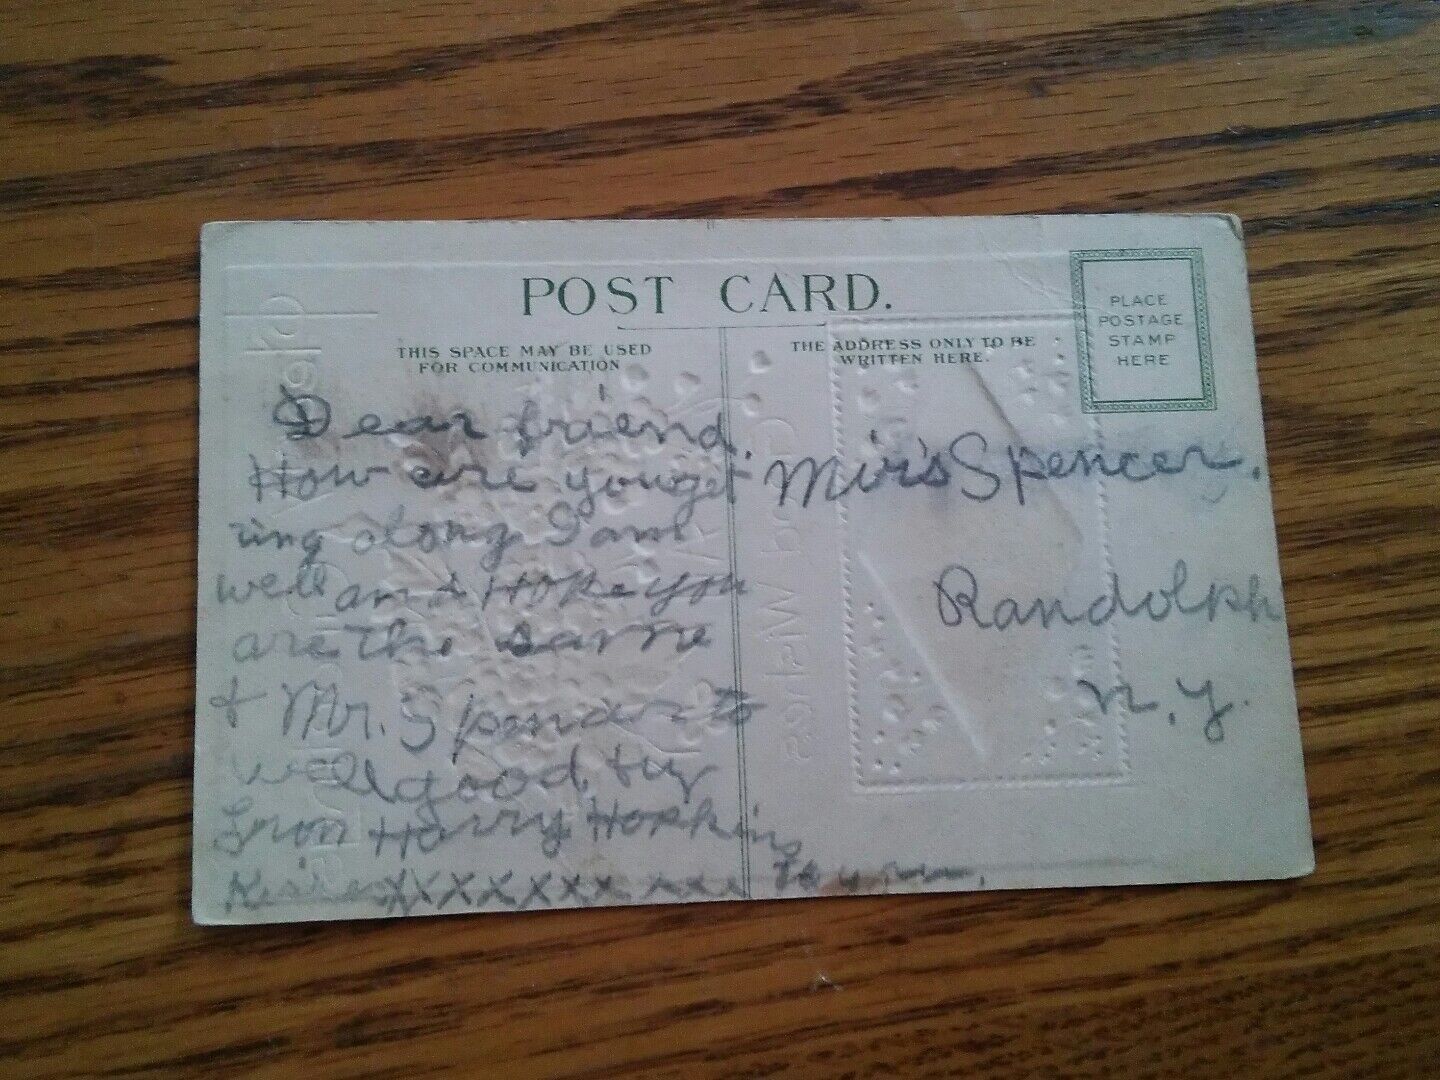 POST CARD.
THIS SPACE MAY BE USED
FOR COMMUNICATION
THE ADDRESS ONLY TO BE
WRITTEN HERE.
PLACE
POSTAGE
STAMP
HERE
Dear friend.
How are you get
ing along I am
well and Hope you
are the same
+ Mr. Spencer to
well good, by
From Harry Hopkins
XXXXXXX xxx to you.
Mris Spencer.
Randolph
N.Y.